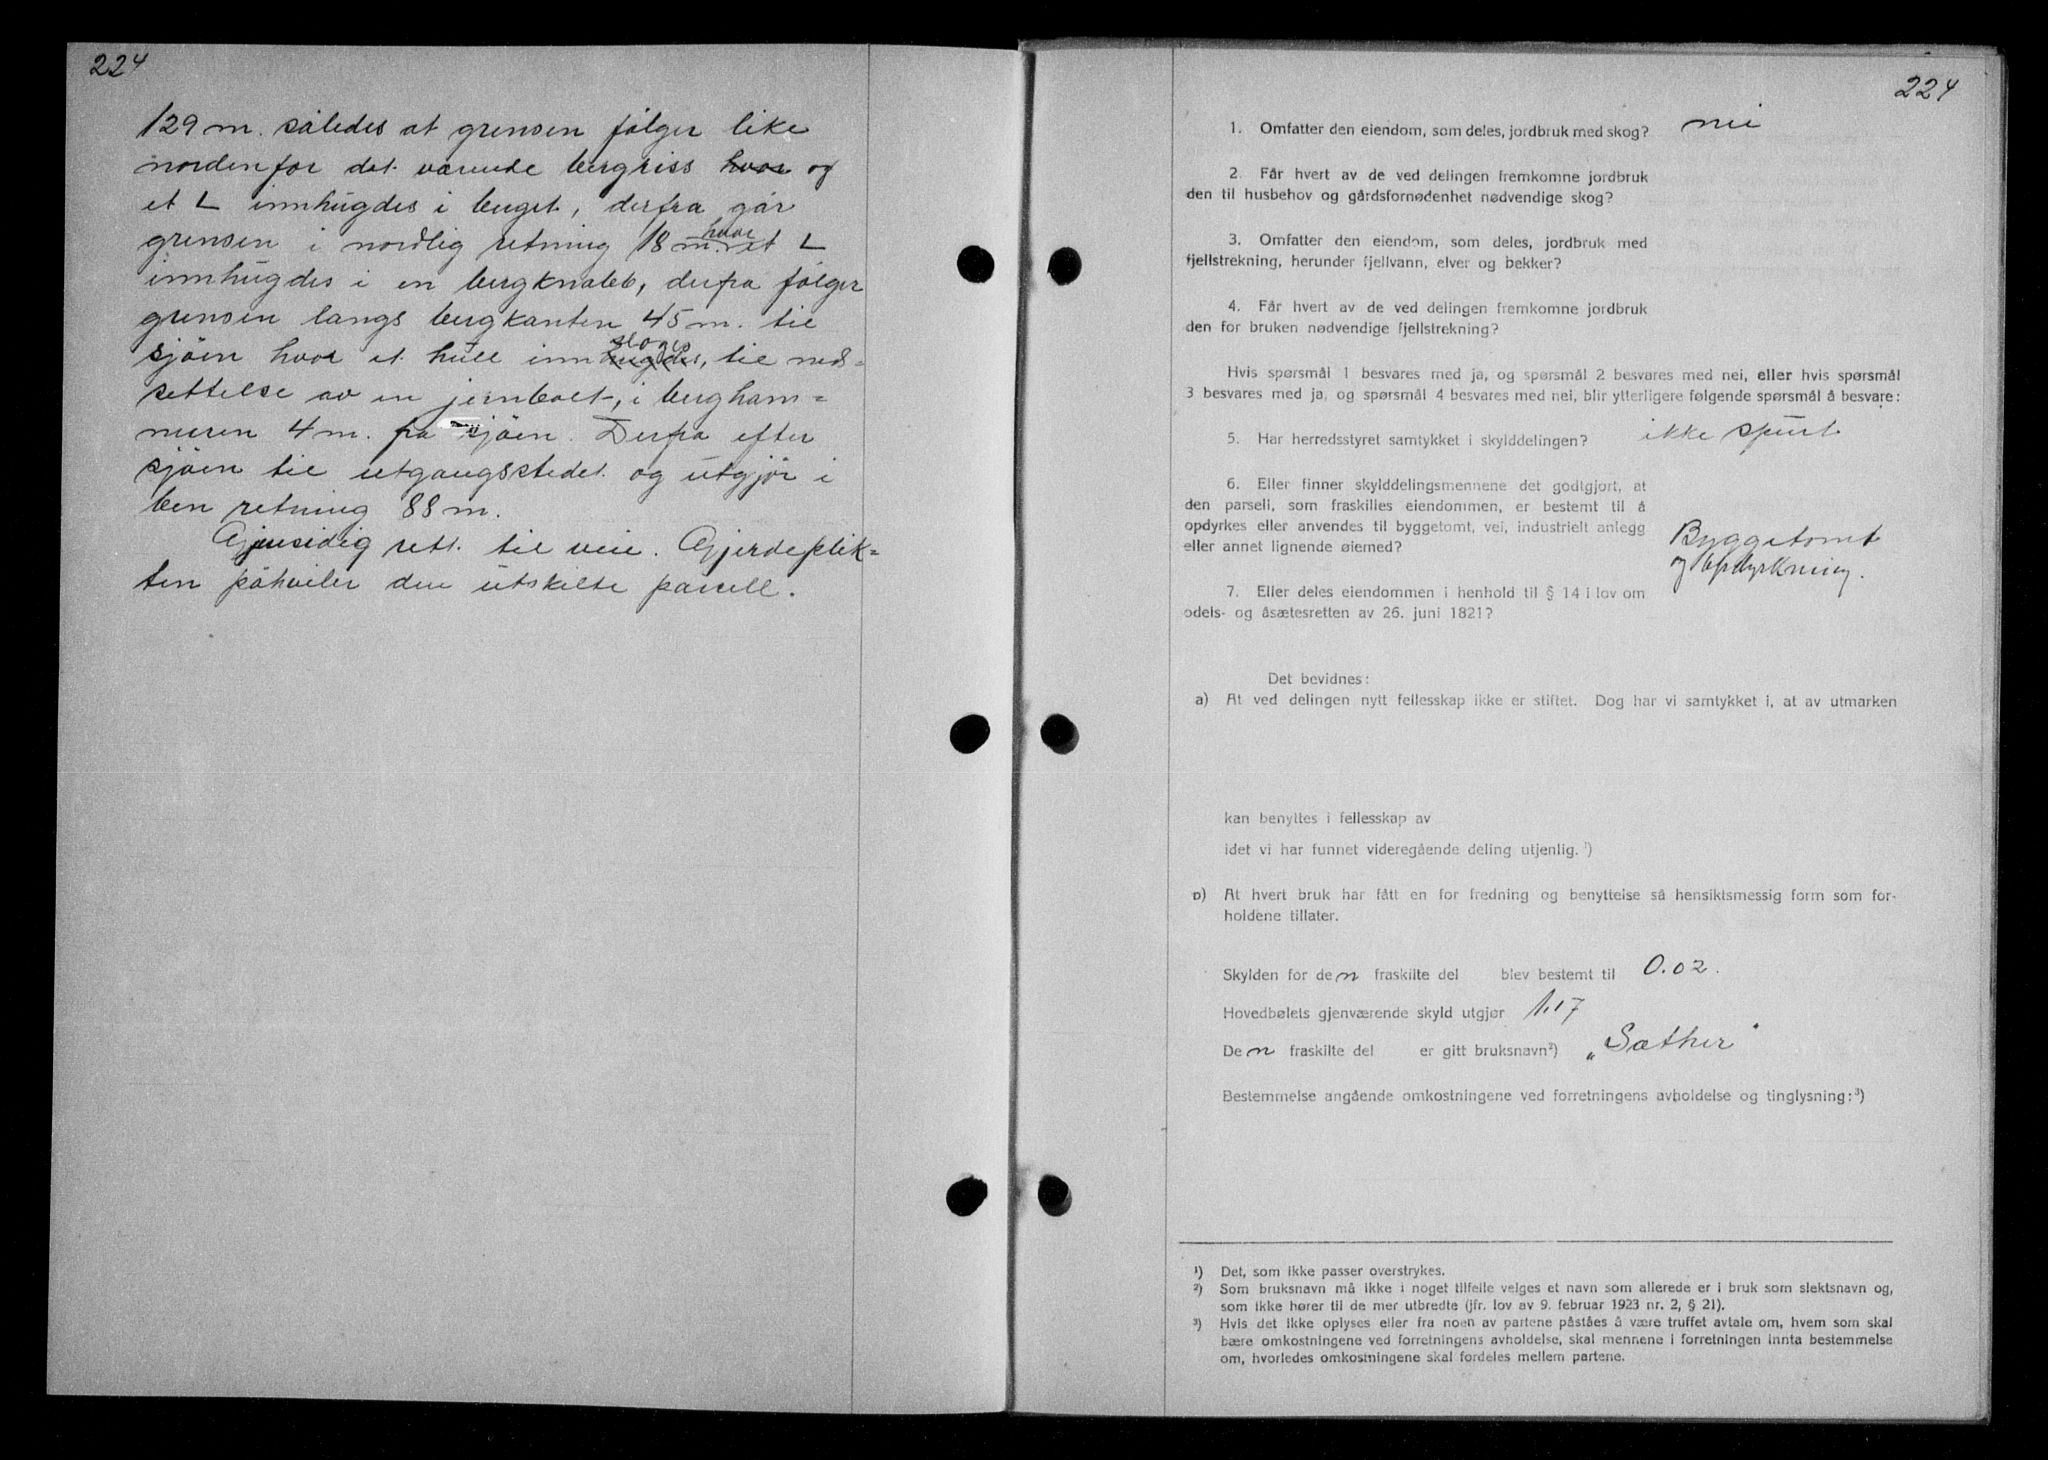 224
129 m. således at grensen følger like
nordenfor det værende bergriss hvor og
et L innhugdes i berget, derfra går
grensen i nordlig retning 18 m. hvor et L
innhugdes i en bergknabb, derfra følger
grensen langs bergkanten 45 m. til
sjøen hvor et hull innhugdes sloges, til ned-
settelse av en jernbolt, i bergham-
meren 4 m. fra sjøen. Derfra efter
sjøen til utgangsstedet og utgjør i
ben retning 88 m.
Gjensidig rett til veie. Gjerdeplik-
ten påhviler den utskilte parcell.
224
1. Omfatter den eiendom, som deles, jordbruk med skog? nei
2. Får hvert av de ved delingen fremkomne jordbruk
den til husbehov og gårdsfornødenhet nødvendige skog?
3. Omfatter den eiendom, som deles, jordbruk med
fjellstrekning, herunder fjellvann, elver og bekker?
4. Får hvert av de ved delingen fremkomne jordbruk
den for bruken nødvendige fjellstrekning?
Hvis spørsmål 1 besvares med ja, og spørsmål 2 besvares med nei, eller hvis spørsmål
3 besvares med ja, og spørsmål 4 besvares med nei, blir ytterligere følgende spørsmål å besvare:
5. Har herredsstyret samtykket i skylddelingen? ikke spurt
6. Eller finner skylddelingsmennene det godtgjort, at
den parsell, som fraskilles eiendommen, er bestemt til å
opdyrkes eller anvendes til byggetomt, vei, industrielt anlegg
eller annet lignende øiemed? Byggetomt
og opdyrkning.
7. Eller deles eiendommen i henhold til § 14 i lov om
odels- og åsætesretten av 26. juni 1821?
Det bevidnes:
a) At ved delingen nytt fellesskap ikke er stiftet. Dog har vi samtykket i, at av utmarken
kan benyttes i fellesskap av
idet vi har funnet videregående deling utjenlig.¹)
b) At hvert bruk har fått en for fredning og benyttelse så hensiktsmessig form som for-
holdene tillater.
Skylden for den fraskilte del blev bestemt til 0.02.
Hovedbølets gjenværende skyld utgjør 1.17
Den fraskilte del er gitt bruksnavn²) „Sæther"
Bestemmelse angående omkostningene ved forretningens avholdelse og tinglysning:³)
¹) Det, som ikke passer overstrykes.
²) Som bruksnavn må ikke i noget tilfelle velges et navn som allerede er i bruk som slektsnavn og,
som ikke hører til de mer utbredte (jfr. lov av 9. februar 1923 nr. 2, § 21).
³) Hvis det ikke oplyses eller fra noen av partene påståes å være truffet avtale om, hvem som skal
bære omkostningene ved forretningens avholdelse, skal mennene i forretningen innta bestemmelse
om, hvorledes omkostningene skal fordeles mellem partene.